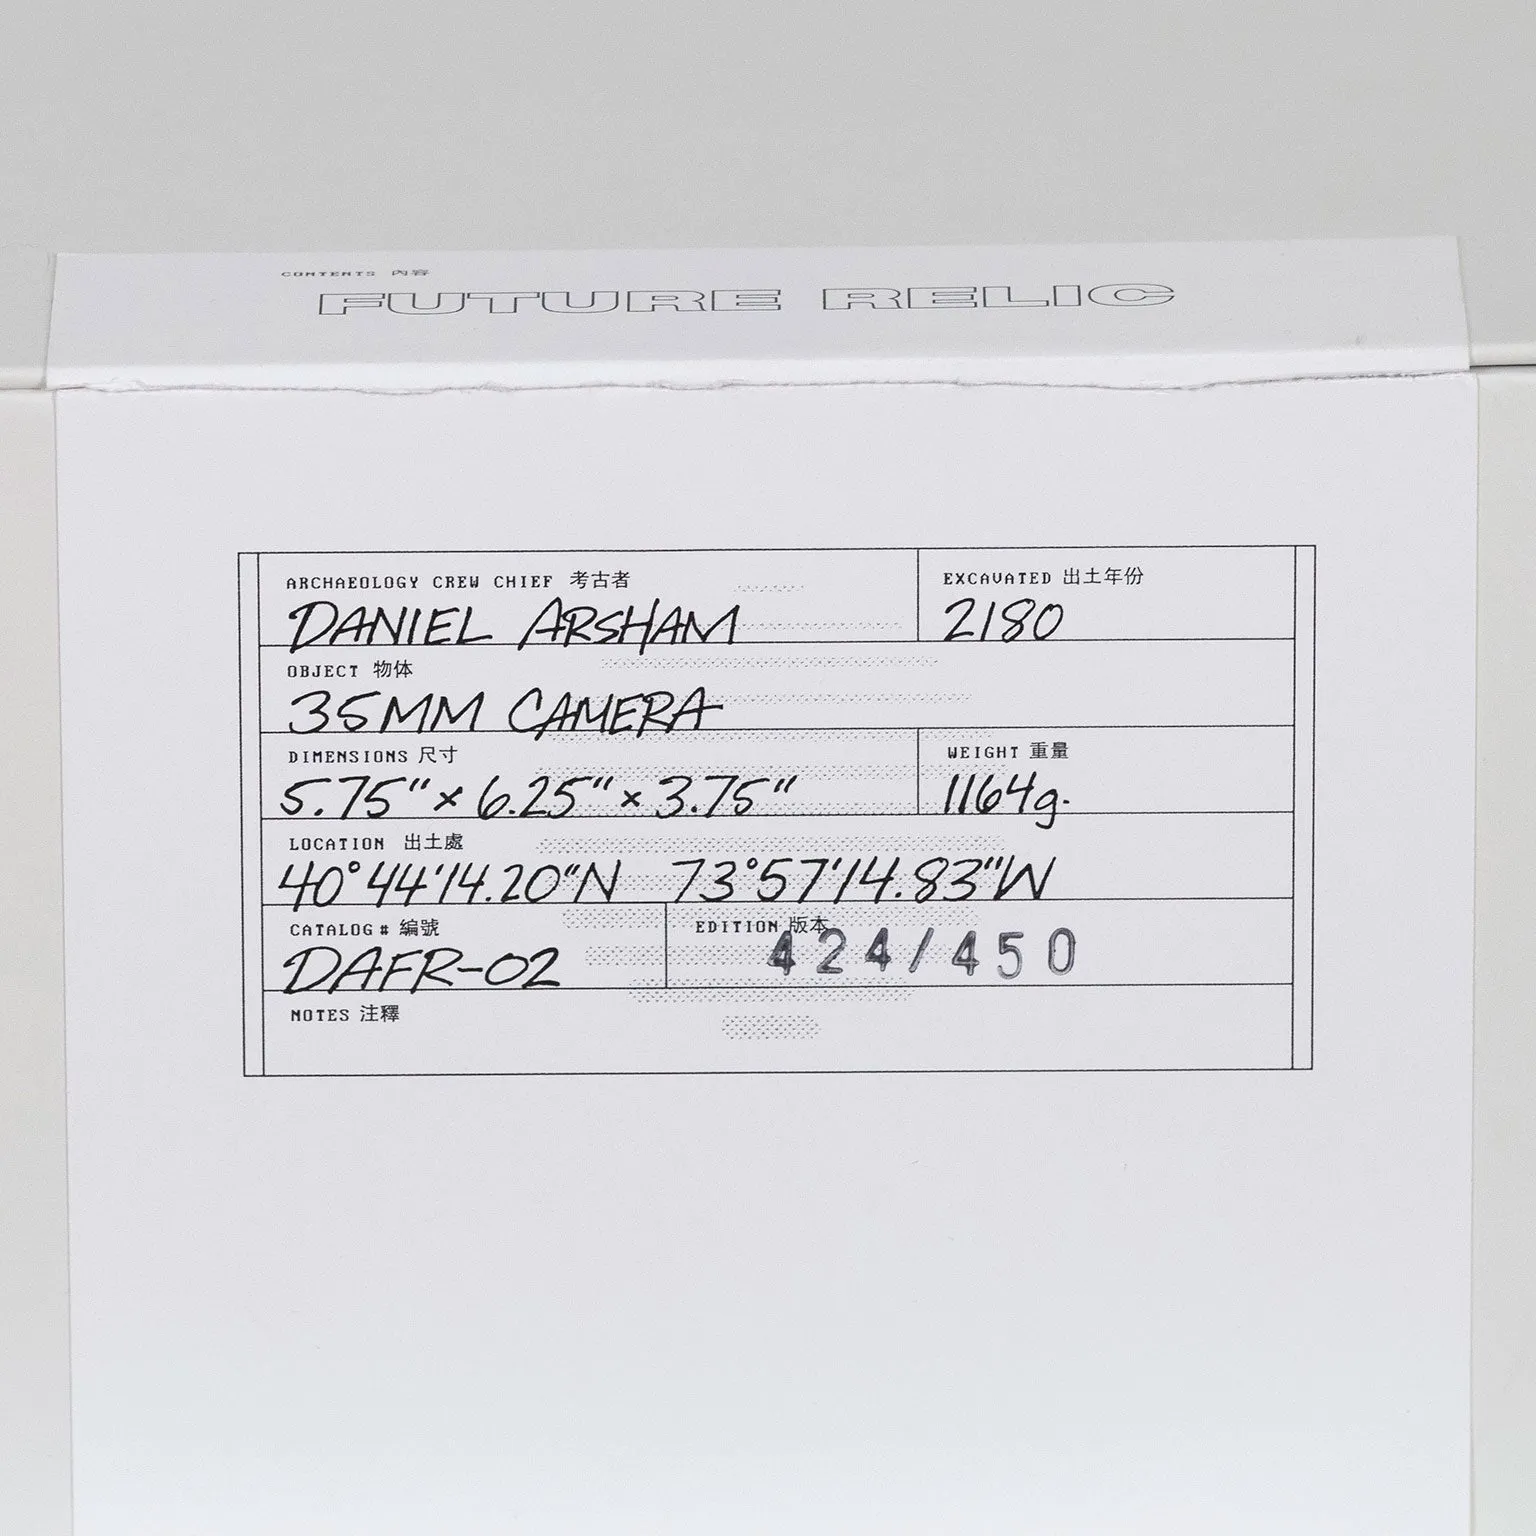 CONTENTS 內容
FUTURE RELIC
ARCHAEOLOGY CREW CHIEF 考古者
DANIEL ARSHAM
EXCAVATED 出土年份
2180
OBJECT 物体
35MM CAMERA
DIMENSIONS 尺寸
5.75" × 6.25" × 3.75"
WEIGHT 重量
1164g.
LOCATION 出土處
40°44'14.20"N 73°57'14.83"W
CATALOG # 編號
DAFR-02
EDITION 版本
424/450
NOTES 注釋